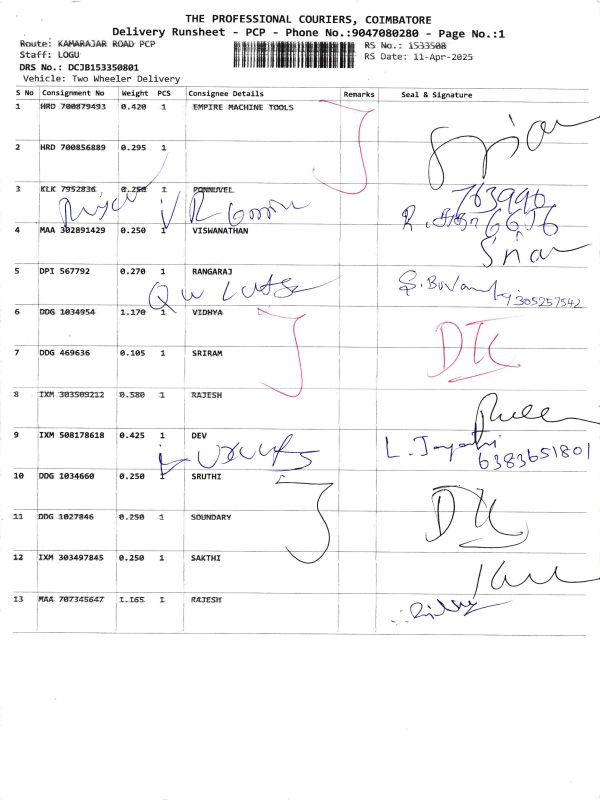 THE PROFESSIONAL COURIERS, COIMBATORE
Delivery Runsheet - PCP - Phone No.:9047080280 - Page No.:1
Route: KAMARAJAR ROAD PCP
RS No.: 1533508
Staff: LOGU
RS Date: 11-Apr-2025
DRS No.: DCJB153350801
Vehicle: Two Wheeler Delivery
S No Consignment No Weight PCS Consignee Details Remarks Seal & Signature
1 HRD 700879493 0.420 1 EMPIRE MACHINE TOOLS
2 HRD 700856889 0.295 1
3 KLK 7952836 0.250 1 PONNUVEL
763990
6616
4 MAA 302891429 0.250 1 VISWANATHAN
5 DPI 567792 0.270 1 RANGARAJ
9305257542
6 DDG 1034954 1.170 1 VIDHYA
7 DDG 469636 0.105 1 SRIRAM
8 IXM 303509212 0.580 1 RAJESH
9 IXM 508178618 0.425 1 DEV
L. Jayathi
6383651801
10 DDG 1034660 0.250 1 SRUTHI
11 DDG 1027846 0.250 1 SOUNDARY
12 IXM 303497845 0.250 1 SAKTHI
13 MAA 707345647 1.165 1 RAJESH